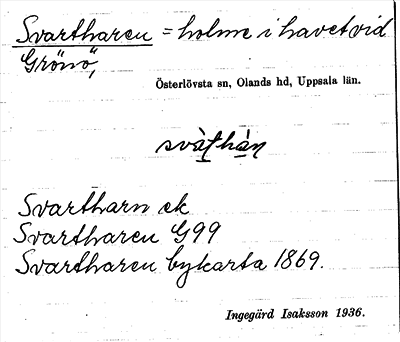 Svartharen = holme i havet vid
Grönö,
Österlövsta sn, Olands hd, Uppsala län.
svàṯhàṉ
Svartharn ek
Svartharen G99
Svartharen bykarta 1869.
Ingegärd Isaksson 1936.